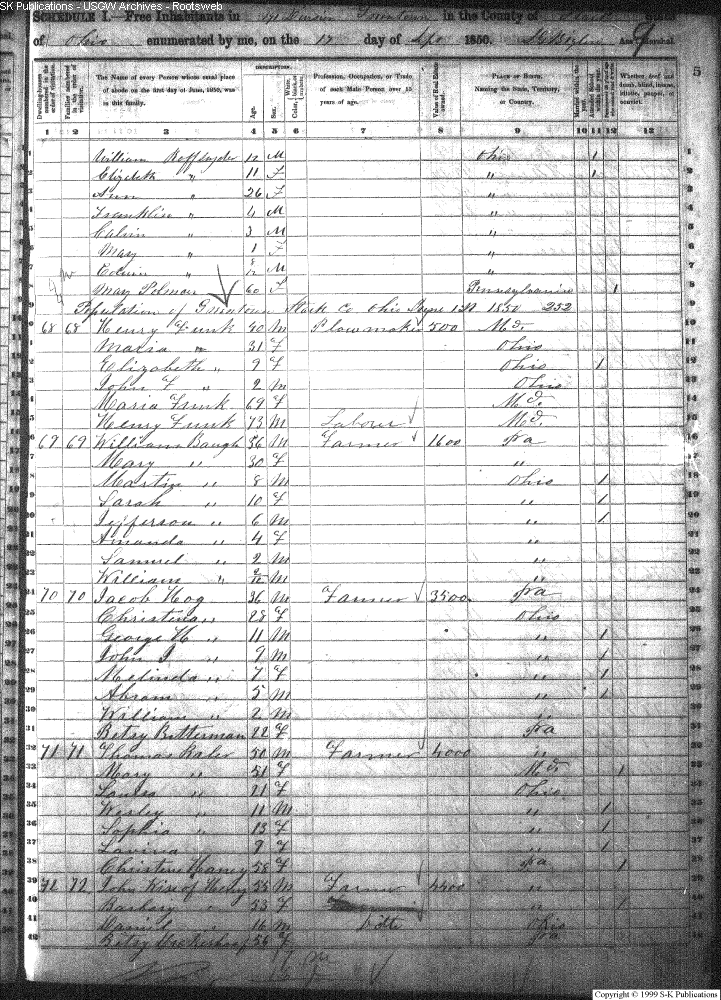 SK Publications - USGW Archives - Rootsweb
SCHEDULE I.—Free Inhabitants in in the County of State
of Ohio enumerated by me, on the 12 day of 1850. Ass't Marshal.
5
Dwelling-houses numbered in the order of visitation.
Families numbered in the order of visitation.
The Name of every Person whose usual place of abode on the first day of June, 1850, was in this family.
DESCRIPTION.
Age.
Sex.
White, black, or mulatto.
Color,
Profession, Occupation, or Trade of each Male Person over 15 years of age.
Value of Real Estate owned.
PLACE OF BIRTH. Naming the State, Territory, or Country.
Married within the year.
Attended School within the year.
Whether deaf and dumb, blind, insane, idiotic, pauper, or convict.
1 2 3 4 5 6 7 8 9 10 11 12 13
1 William 12 M Ohio 1
2 Elizabeth " 11 F " 1
3 Ann " 26 F "
4 Franklin " 4 M "
5 Calvin " 3 M "
6 May " 1 F "
7 Edwin " M "
8 May Polmon 60 F Pennsylvania 1
9 Population of Stark Co Ohio 1st 1850 252
10 68 68 Henry Funk 40 M Plowmaker 500 Md.
11 Maria " 31 F Ohio
12 Elizabeth " 9 F Ohio 1
13 John F " 2 M Ohio
14 Maria Funk 69 F Md.
15 Henry Funk 73 M Labour Md.
16 69 69 William Baugh 36 M Farmer 1600 Pa
17 Mary " 30 F "
18 Martin " 8 M Ohio 1
19 Sarah " 10 F " 1
20 Jefferson " 6 M " 1
21 Amanda " 4 F "
22 Samuel " 2 M "
23 William " 2/12 M "
24 70 70 Jacob Hog 36 M Farmer 3500 Pa
25 Christina " 28 F Ohio
26 George H " 11 M " 1
27 John J " 9 M " 1
28 Melinda " 7 F " 1
29 Abram " 5 M " 1
30 William " 2 M "
31 Betsy Bitterman 22 F Pa
32 71 71 Thomas 50 M Farmer 4000 "
33 Mary " 51 F Md. 1
34 " 21 F Ohio
35 Wesley " 11 M " 1
36 Sophia " 13 F " 1
37 Lavina " 9 F " 1
38 Christine Haney 58 F Pa 1
39 72 72 John of Henry 55 M Farmer 4400 "
40 Barbary " 53 F " 1
41 Daniel " 16 M Ditto Ohio
42 Betsy 56 F Pa
Copyright © 1999 S-K Publications